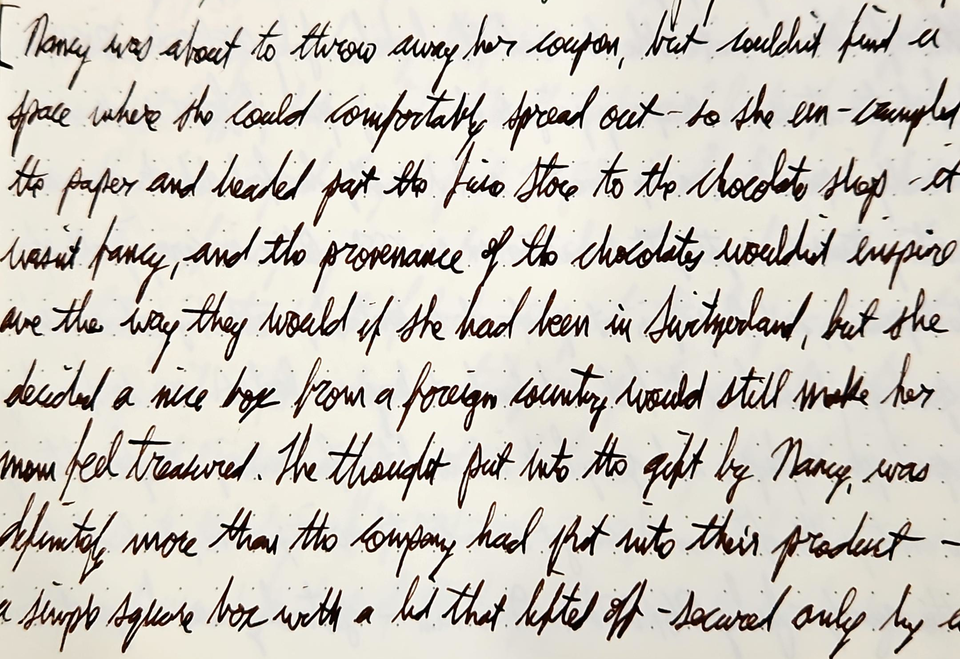 [ Nancy was about to throw away her coupon, but couldn't find a
space where she could comfortably spread out - so she un-crumpled
the paper and headed past the store to the chocolate shop - it
wasn't fancy, and the provenance of the chocolates wouldn't inspire
awe the way they would if she had been in Switzerland, but she
decided a nice box from a foreign country would still make her
mom feel treasured. The thought put into the gift by Nancy, was
definitely more than the company had put into their product -
a simple square box with a lid that lifted off - secured only by a